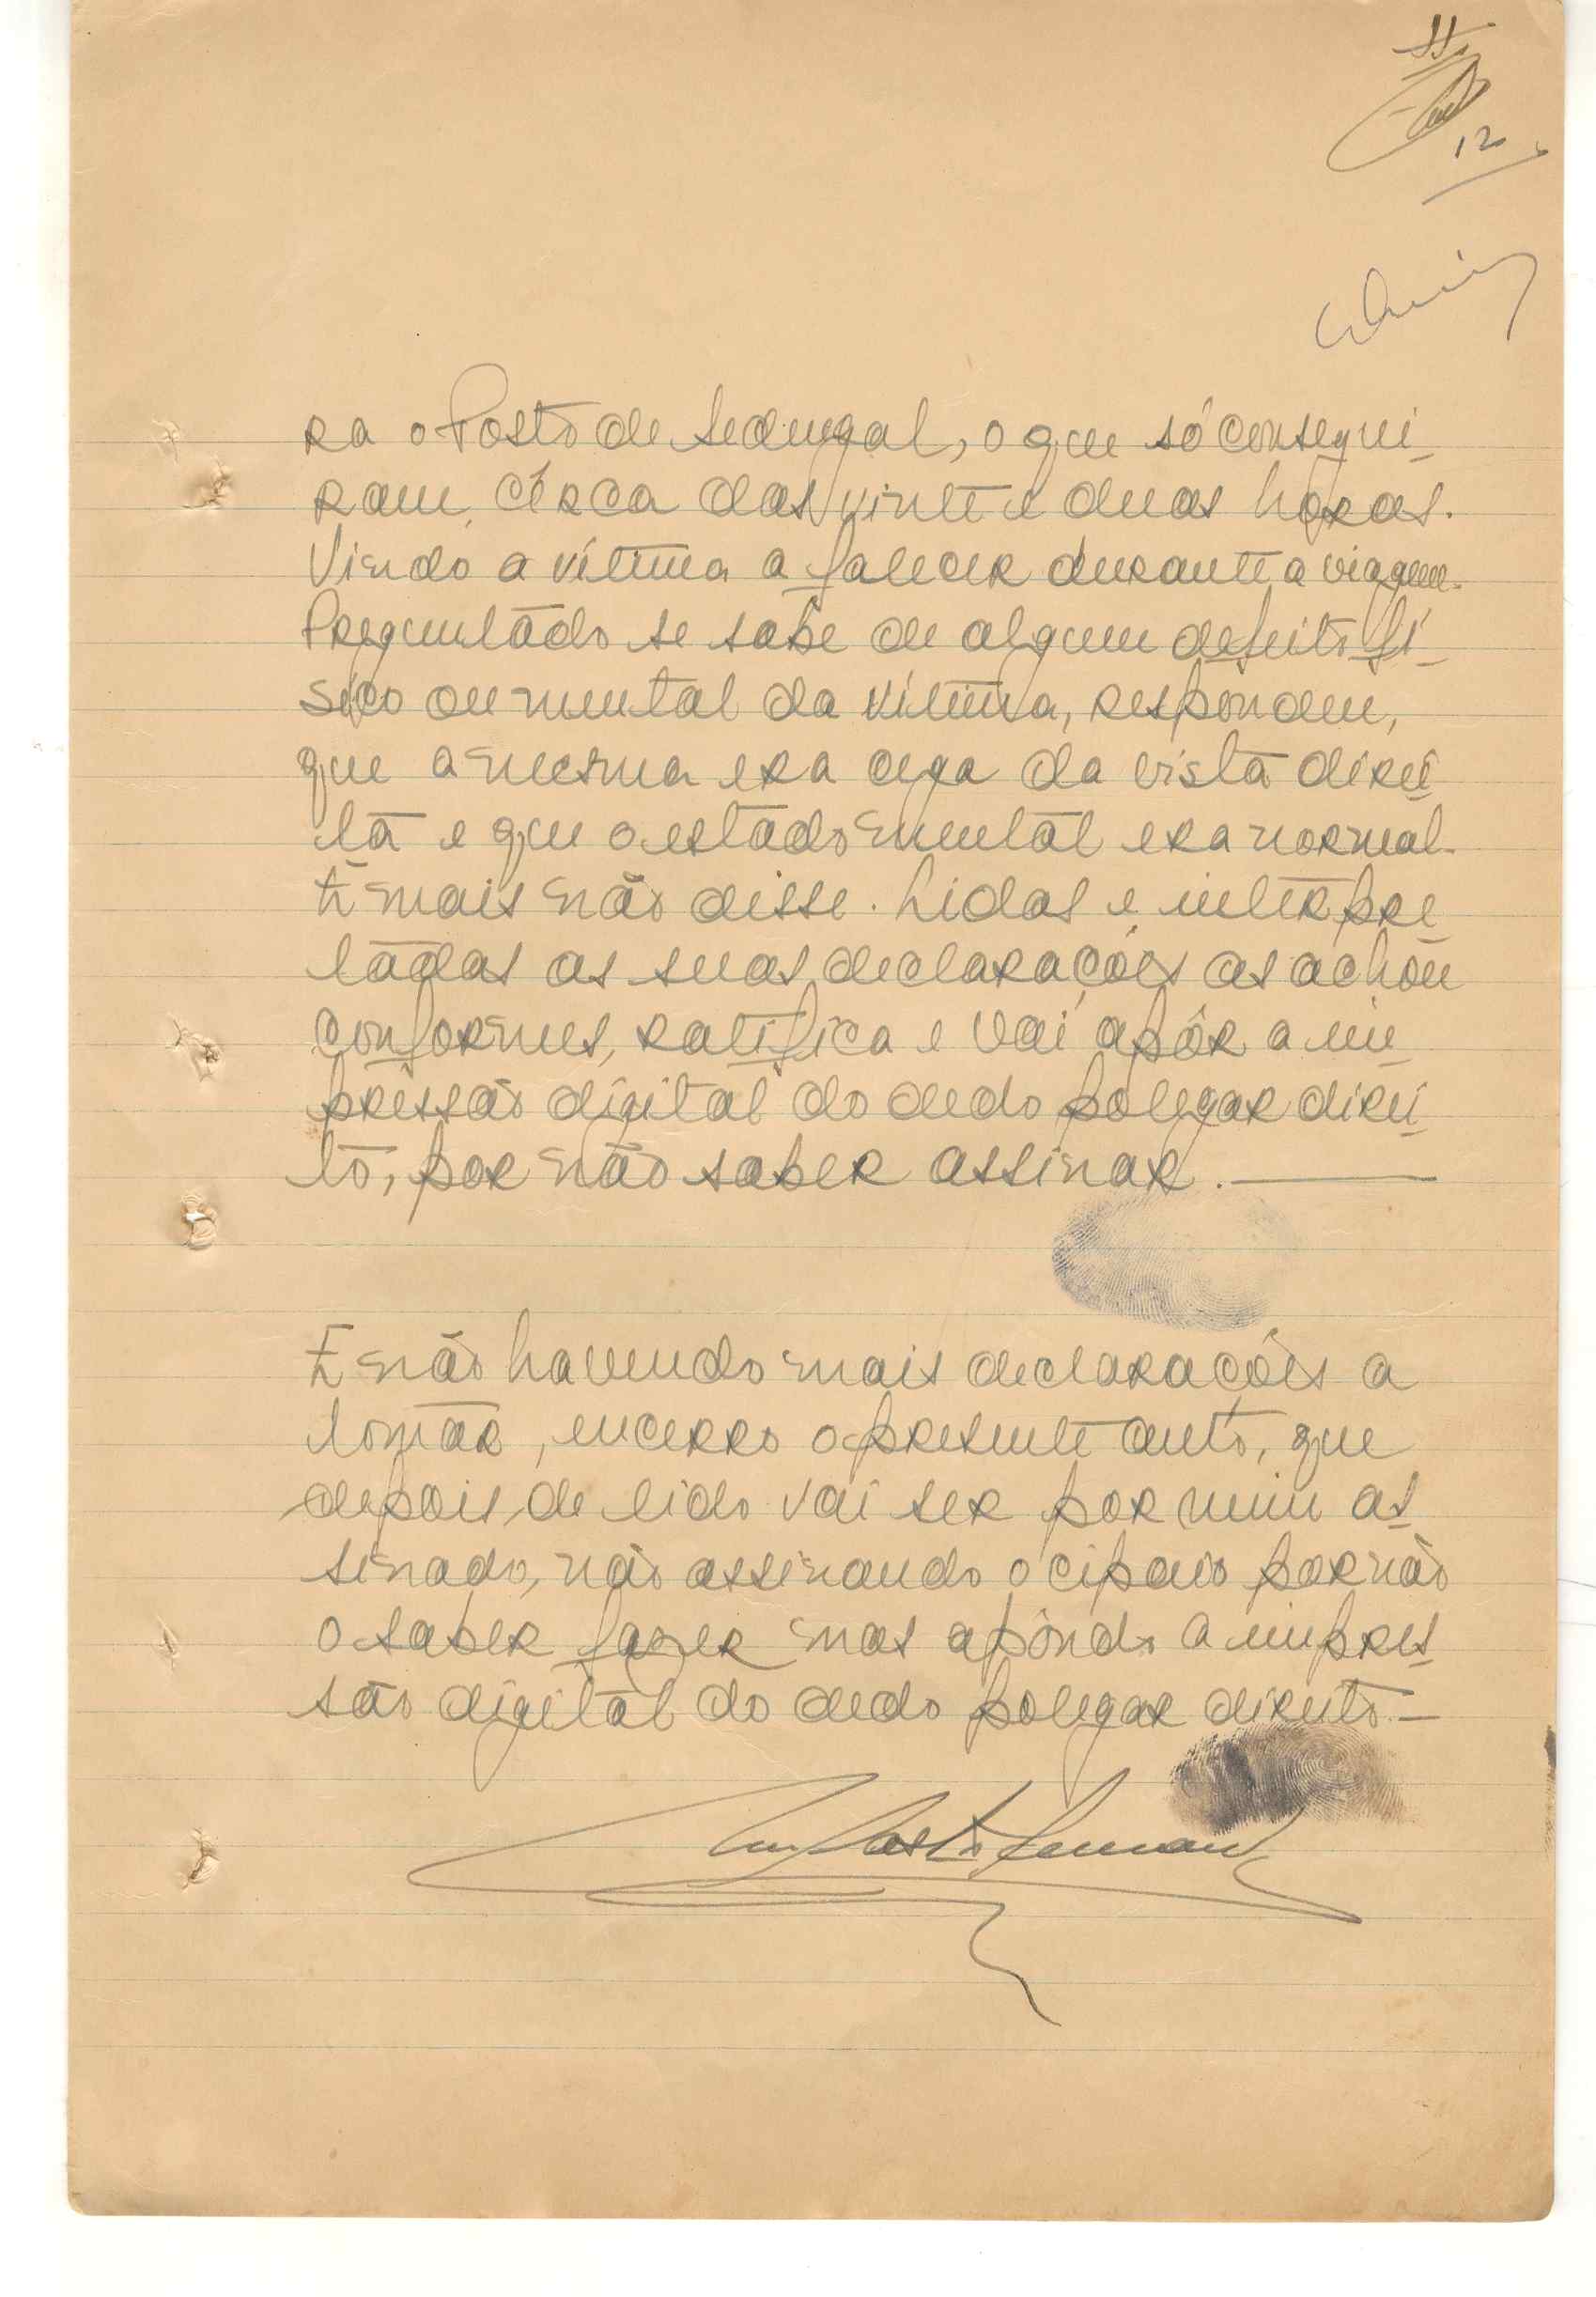 12
ra o Posto de Sedengal, o que só consegui_
ram, cêrca das vinte e duas horas.
Viendo a vítima a falecer durante a viagem.
Preguntado se sabe de algum defeito fí_
sico ou mental da vítima, respondeu,
que a mesma era cega da vista direi_
ta e que o estado mental era normal.
E mais não disse. Lidas e interpre_
tadas as suas declarações as achou
conformes, ratifica e vai apôr a im_
pressão digital do dedo polegar direi_
to, por não saber assinar.
E não havendo mais declarações a
tomar, encerro o presente auto, que
depois de lido vai ser por mim as_
sinado, não assinando o cipaio por não
o saber fazer mas apôndo a impres_
são digital do dedo polegar direito—